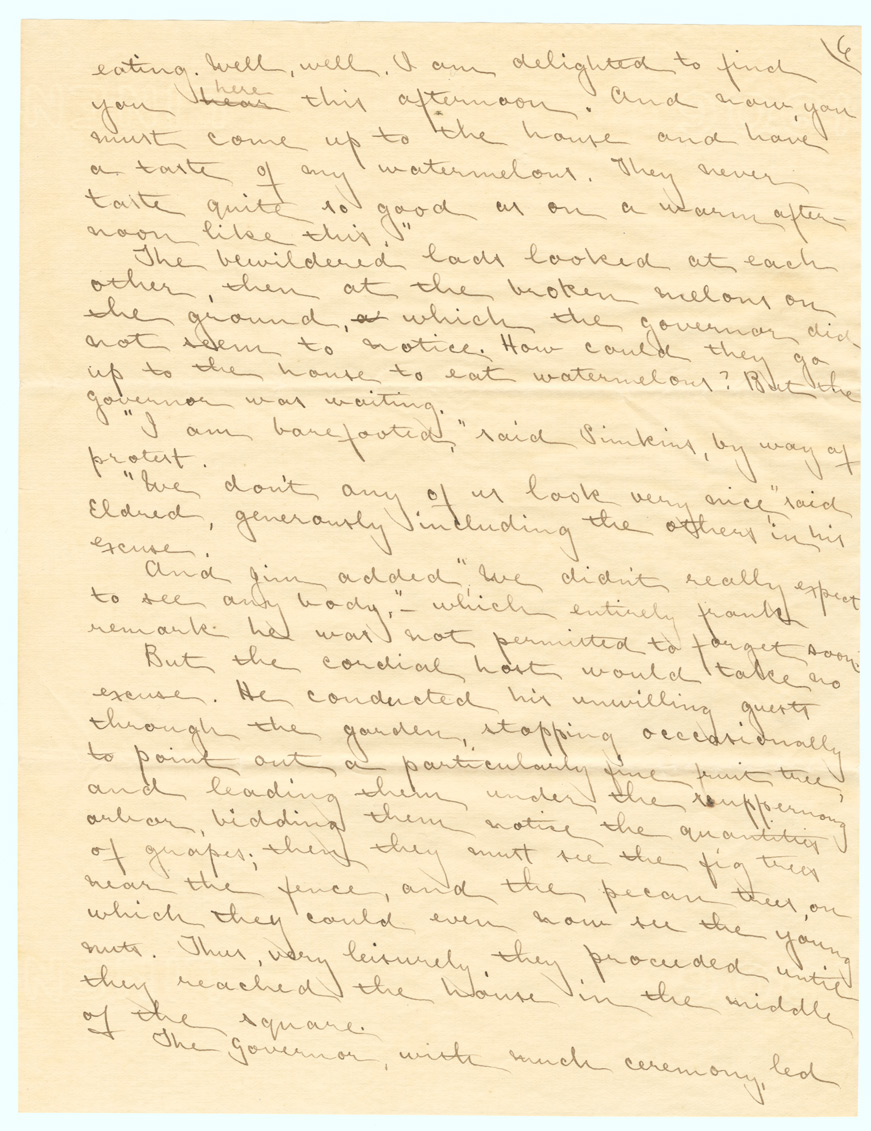 6
eating. Well, well. I am delighted to find
you hear here this afternoon. And now you
must come up to the house and have
a taste of my watermelons. They never
taste quite so good as on a warm after-
noon like this."
The bewildered lads looked at each
other, then at the broken melons on
the ground, a which the governor did
not seem to notice. How could they go
up to the house to eat watermelons? But the
governor was waiting.
"I am barefooted," said Simkins, by way of
protest.
"We don't any of us look very nice" said
Eldred, generously including the others in his
excuse.
And Jim added, "We didn't really expect
to see any body," - which entirely frank
remark he was not permitted to forget soon.
But the cordial host would take no
excuse. He conducted his unwilling guests
through the garden, stopping occasionally
to point out a particularly fine fruit tree,
and leading them under the scuppernong
arbor, bidding them notice the quantities
of grapes; then they must see the fig trees
near the fence, and the pecan trees, on
which they could even now see the young
nuts. Thus, very leisurely, they proceeded until
they reached the house in the middle
of the square.
The governor, with much ceremony, led